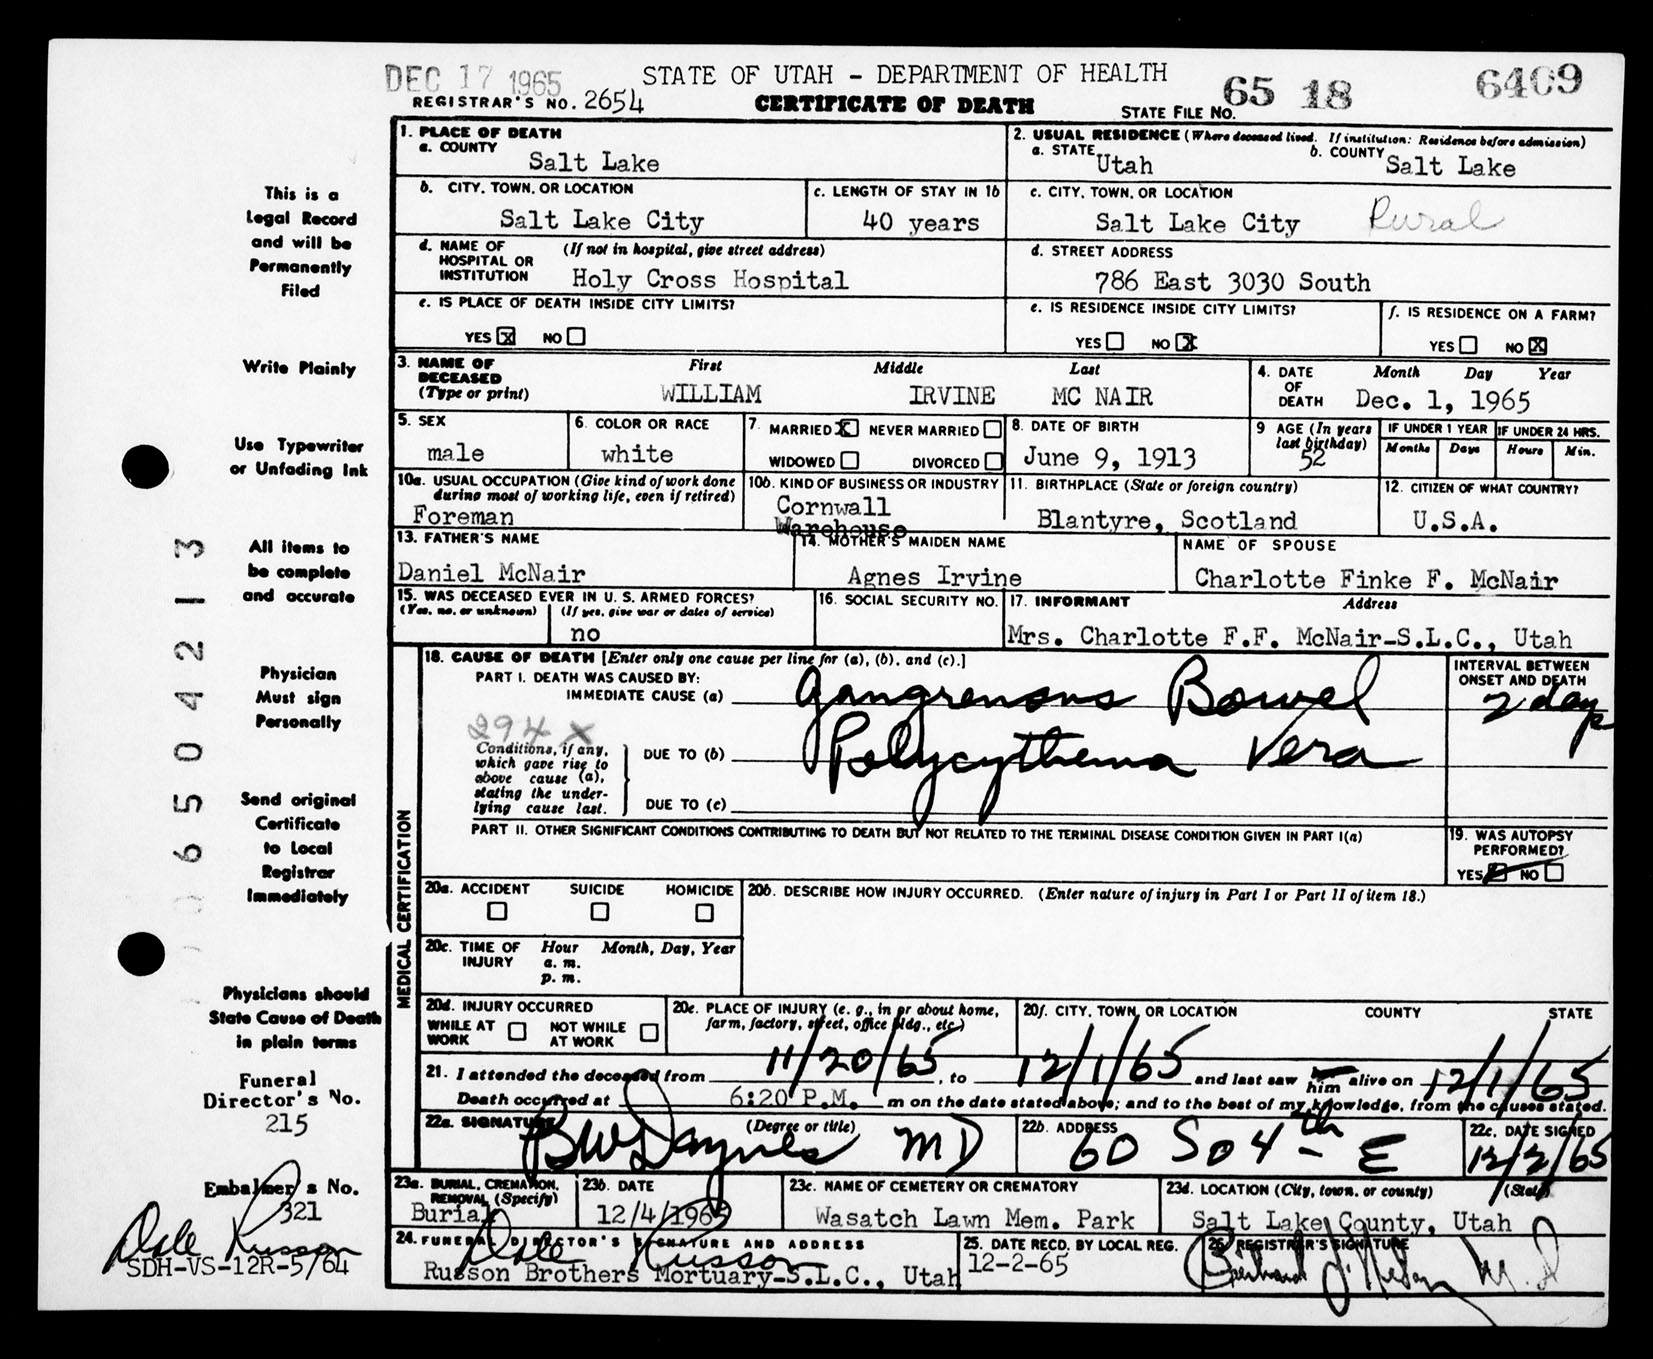 DEC 17 1965
STATE OF UTAH - DEPARTMENT OF HEALTH
65 18 6409
REGISTRAR'S NO. 2654
CERTIFICATE OF DEATH
STATE FILE NO.
This is a
Legal Record
and will be
Permanently
Filed
Write Plainly
Use Typewriter
or Unfading Ink
All items to
be complete
and accurate
Physician
Must sign
Personally
Send original
Certificate
to Local
Registrar
Immediately
Physicians should
State Cause of Death
in plain terms
Funeral
Director's No.
215
Embalmer's No.
321
Dale Russon
SDH-VS-12R-5/64
650 4213
1. PLACE OF DEATH
a. COUNTY
Salt Lake
2. USUAL RESIDENCE (Where deceased lived. If institution: Residence before admission)
a. STATE Utah b. COUNTY Salt Lake
b. CITY, TOWN, OR LOCATION
Salt Lake City
c. LENGTH OF STAY IN 1b
40 years
c. CITY, TOWN, OR LOCATION
Salt Lake City Rural
d. NAME OF HOSPITAL OR INSTITUTION (If not in hospital, give street address)
Holy Cross Hospital
d. STREET ADDRESS
786 East 3030 South
e. IS PLACE OF DEATH INSIDE CITY LIMITS?
YES X NO
e. IS RESIDENCE INSIDE CITY LIMITS?
YES NO X
f. IS RESIDENCE ON A FARM?
YES NO X
3. NAME OF DECEASED (Type or print)
First Middle Last
WILLIAM IRVINE MC NAIR
4. DATE OF DEATH
Month Day Year
Dec. 1, 1965
5. SEX
male
6. COLOR OR RACE
white
7. MARRIED X NEVER MARRIED
WIDOWED DIVORCED
8. DATE OF BIRTH
June 9, 1913
9 AGE (In years last birthday)
52
IF UNDER 1 YEAR
Months Days
IF UNDER 24 HRS.
Hours Min.
10a. USUAL OCCUPATION (Give kind of work done during most of working life, even if retired)
Foreman
10b. KIND OF BUSINESS OR INDUSTRY
Cornwall
Warehouse
11. BIRTHPLACE (State or foreign country)
Blantyre, Scotland
12. CITIZEN OF WHAT COUNTRY?
U.S.A.
13. FATHER'S NAME
Daniel McNair
14. MOTHER'S MAIDEN NAME
Agnes Irvine
NAME OF SPOUSE
Charlotte Finke F. McNair
15. WAS DECEASED EVER IN U. S. ARMED FORCES?
(Yes, no, or unknown) (If yes, give war or dates of service)
no
16. SOCIAL SECURITY NO.
17. INFORMANT Address
Mrs. Charlotte F.F. McNair-S.L.C., Utah
MEDICAL CERTIFICATION
18. CAUSE OF DEATH [Enter only one cause per line for (a), (b), and (c).]
PART I. DEATH WAS CAUSED BY:
IMMEDIATE CAUSE (a) Gangrenous Bowel
INTERVAL BETWEEN ONSET AND DEATH
2 days
294 X
Conditions, if any,
which gave rise to
above cause (a),
stating the under-
lying cause last.
DUE TO (b) Polycythema Vera
DUE TO (c)
PART II. OTHER SIGNIFICANT CONDITIONS CONTRIBUTING TO DEATH BUT NOT RELATED TO THE TERMINAL DISEASE CONDITION GIVEN IN PART I(a)
19. WAS AUTOPSY PERFORMED?
YES NO
20a. ACCIDENT SUICIDE HOMICIDE
20b. DESCRIBE HOW INJURY OCCURRED. (Enter nature of injury in Part I or Part II of item 18.)
20c. TIME OF INJURY
Hour Month, Day, Year
a. m.
p. m.
20d. INJURY OCCURRED
WHILE AT WORK NOT WHILE AT WORK
20e. PLACE OF INJURY (e. g., in or about home, farm, factory, street, office bldg., etc.)
20f. CITY, TOWN, OR LOCATION COUNTY STATE
21. I attended the deceased from 11/20/65, to 12/1/65 and last saw him alive on 12/1/65
Death occurred at 6:20 P.M. m on the date stated above; and to the best of my knowledge, from the causes stated.
22a. SIGNATURE (Degree or title)
BW Daynes MD
22b. ADDRESS
60 So 4th - E
22c. DATE SIGNED
12/2/65
23a. BURIAL, CREMATION, REMOVAL (Specify)
Burial
23b. DATE
12/4/1965
23c. NAME OF CEMETERY OR CREMATORY
Wasatch Lawn Mem. Park
23d. LOCATION (City, town, or county) (State)
Salt Lake County, Utah
24. FUNERAL DIRECTOR'S SIGNATURE AND ADDRESS
Dale Russon
Russon Brothers Mortuary-S.L.C., Utah
25. DATE RECD. BY LOCAL REG.
12-2-65
26. REGISTRAR'S SIGNATURE
M.D